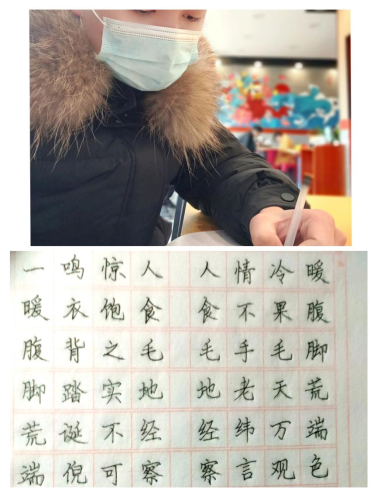 一鸣惊人 人情冷暖
暖衣饱食 食不果腹
腹背之毛 毛手毛脚
脚踏实地 地老天荒
荒诞不经 经纬万端
端倪可察 察言观色